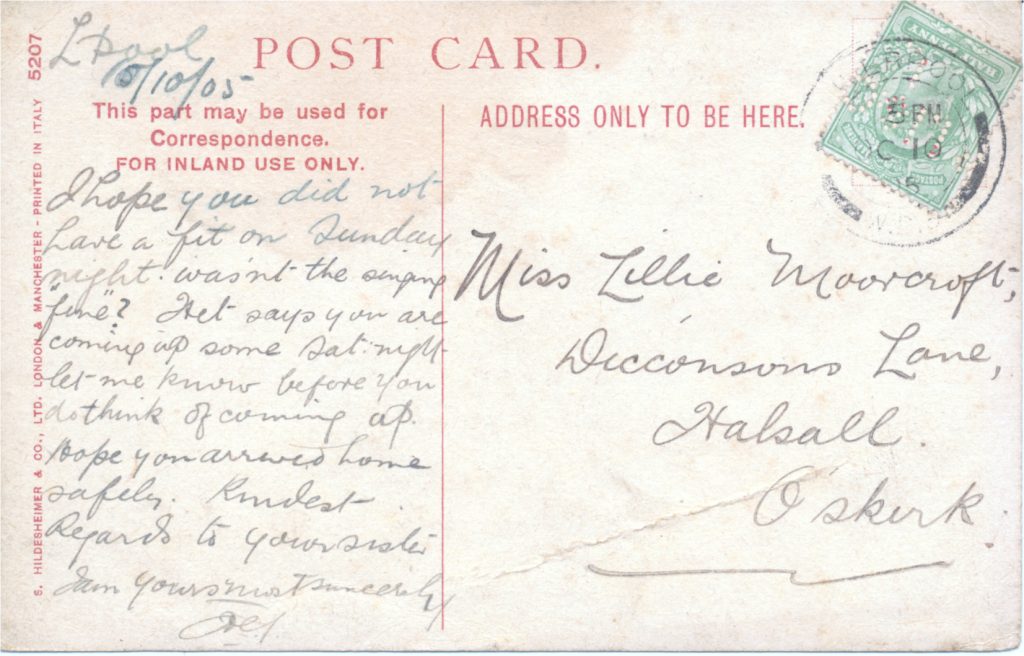 L'pool
5/10/05
POST CARD.
This part may be used for
Correspondence.
FOR INLAND USE ONLY.
ADDRESS ONLY TO BE HERE.
5207
S. HILDESHEIMER & CO., LTD. LONDON & MANCHESTER - PRINTED IN ITALY
I hope you did not
have a fit on Sunday
night. wasn't the singing
"fine"? Het says you are
coming up some Sat. night
let me know before you
do think of coming up.
Hope you arrived home
safely. Kindest
Regards to your sister
I am yours most sincerely
Miss Lillie Moorcroft,
Dicconsons Lane,
Halsall.
O'skirk
HALF PENNY
POSTAGE
LIVERPOOL
PM
OC 10
05